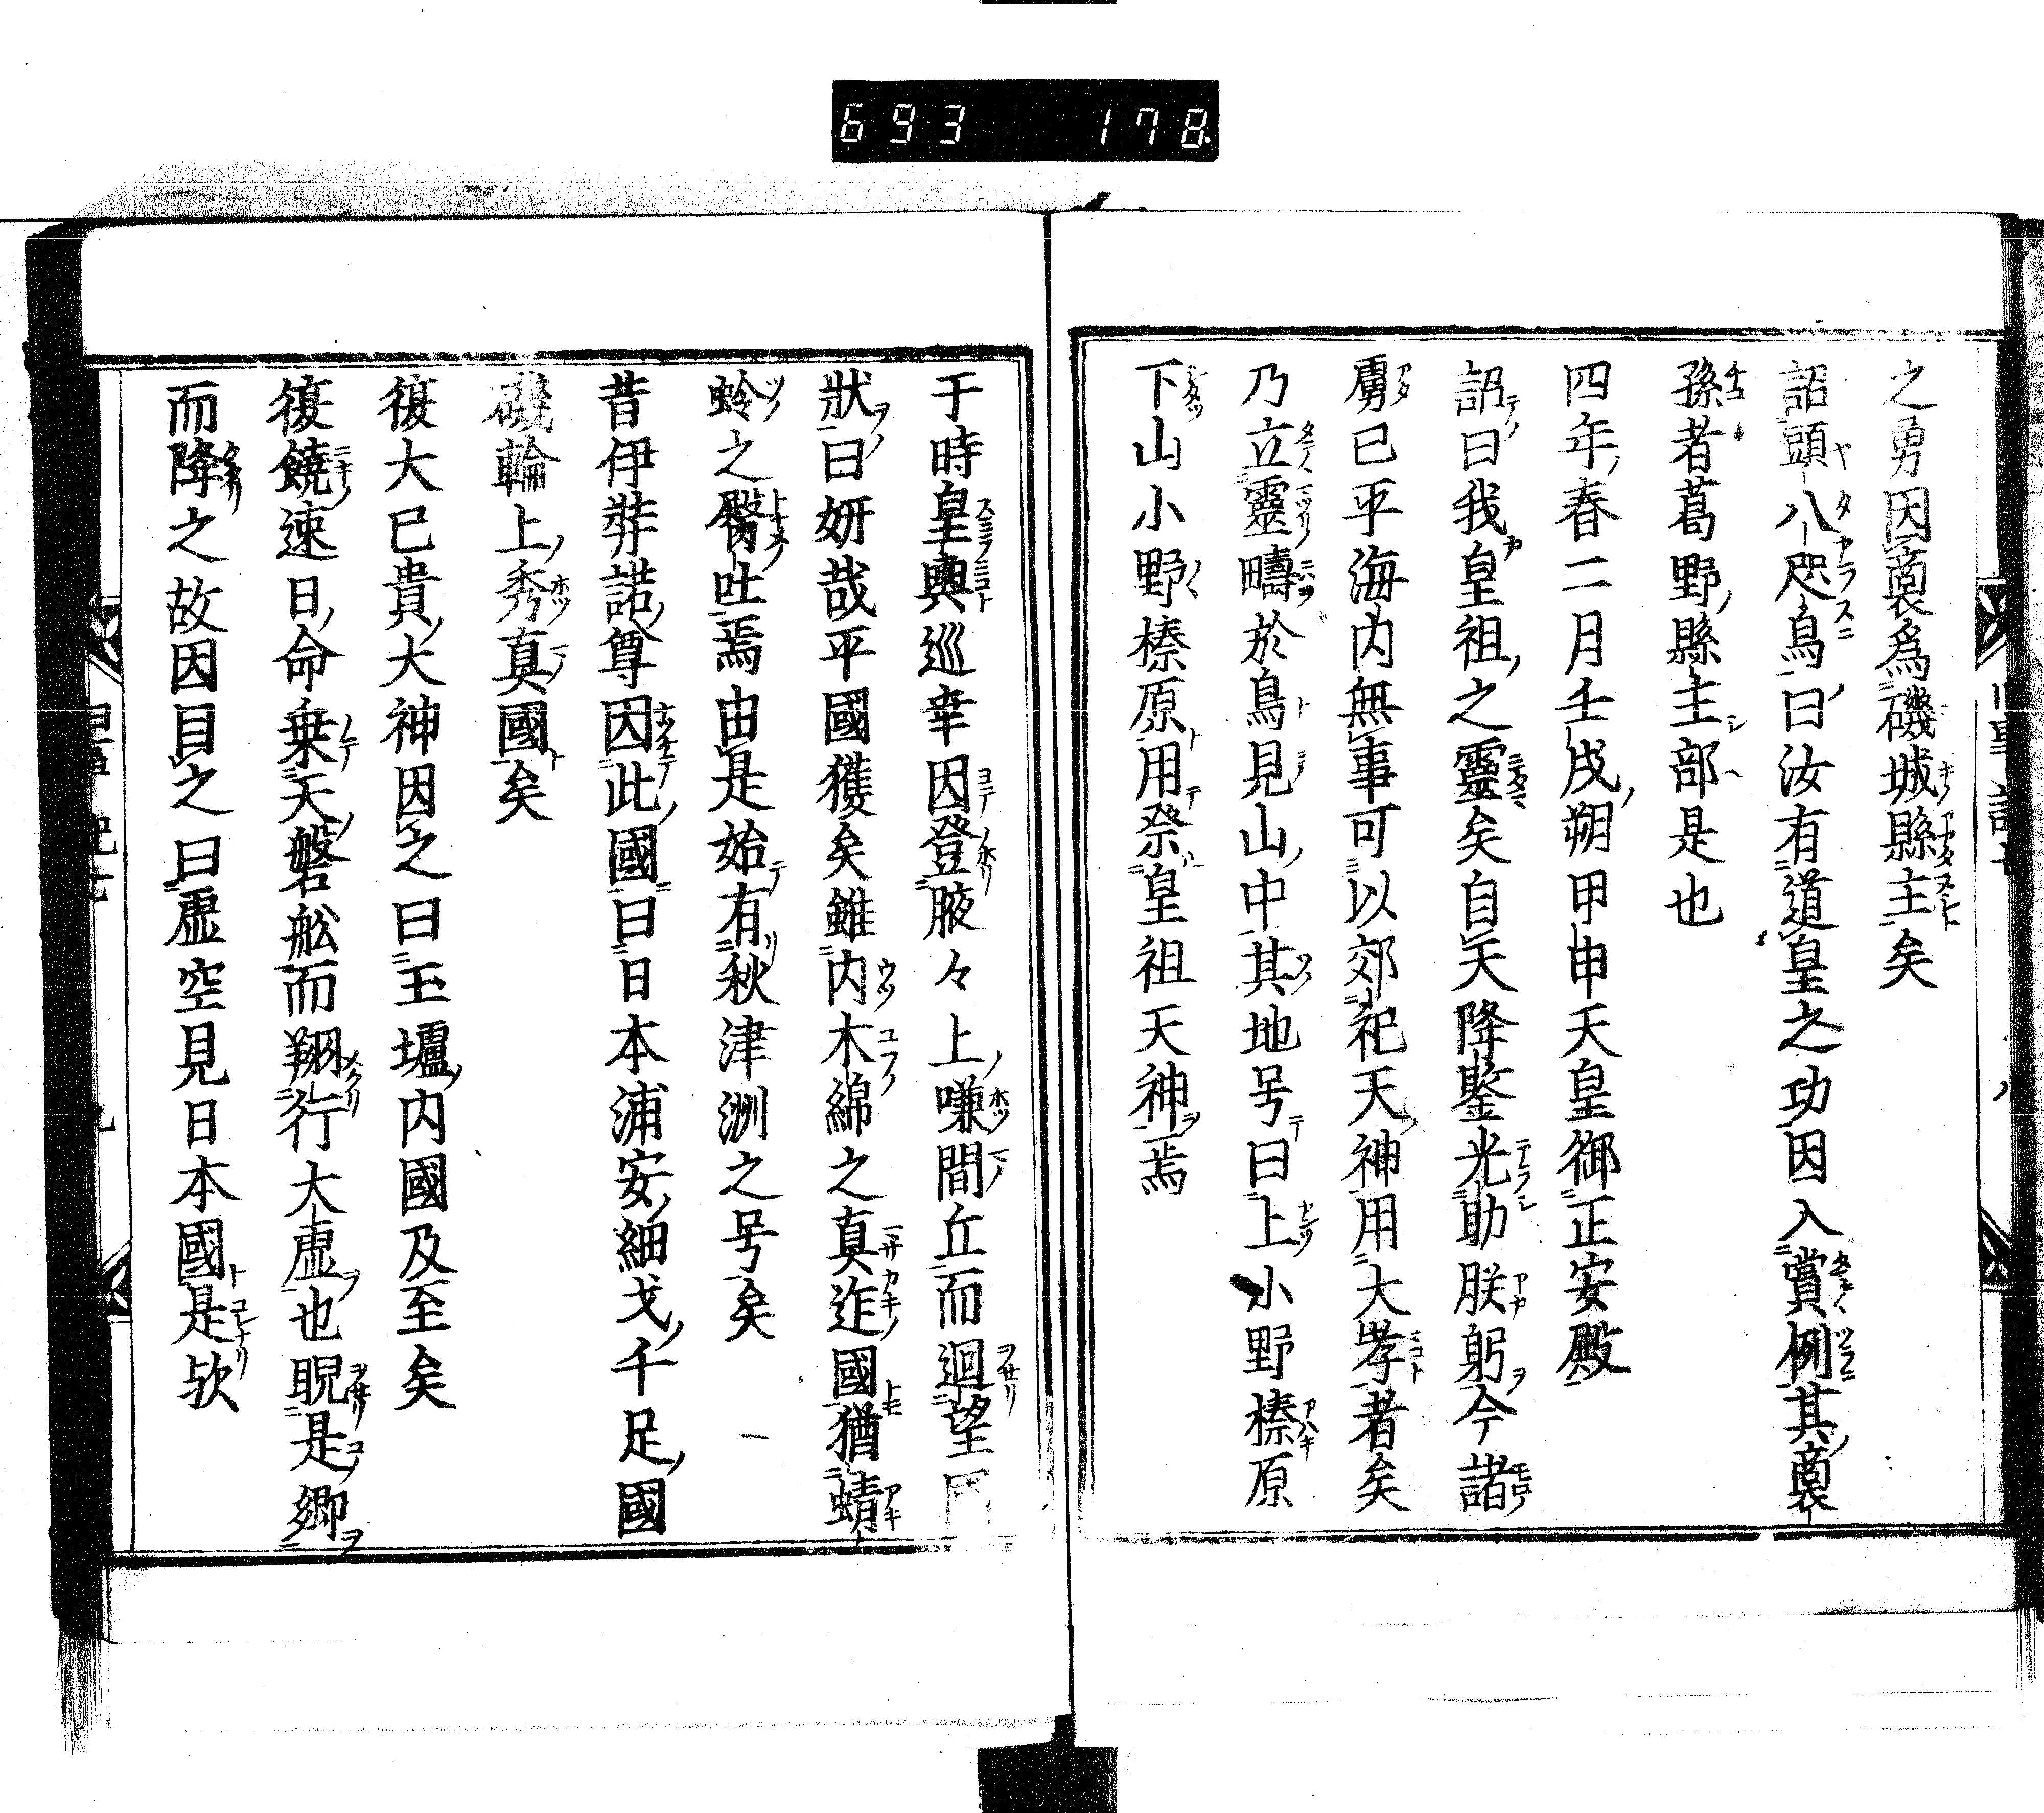 693 178
之勇因裒為磯城縣主矣
詔頭八咫鳥曰汝有道皇之功因入賞例其裒
孫者葛野縣主部是也
四年春二月壬戌朔甲申天皇御正安殿
詔曰我皇祖之靈矣自天降鑒光助朕躬今諸
虜已平海内無事可以郊祀天神用大孝者矣
乃立靈疇於鳥見山中其地号曰上小野榛原
下山小野榛原用祭皇祖天神焉
于時皇輿巡幸因登腋々上嗛間丘而迴望
狀曰妍哉乎國獲矣雖内木綿之真迮國猶蜻
蛉之臀呫焉由是始有秋津洲之号矣
昔伊弉諾尊因此國曰日本浦安細戈千足國
磯輪上秀真國矣
復大己貴大神因之曰玉墟内國及至矣
復饒速日命乗天磐舩而翔行大虛也睨是郷
而降之故因目之曰虛空見日本國是欤